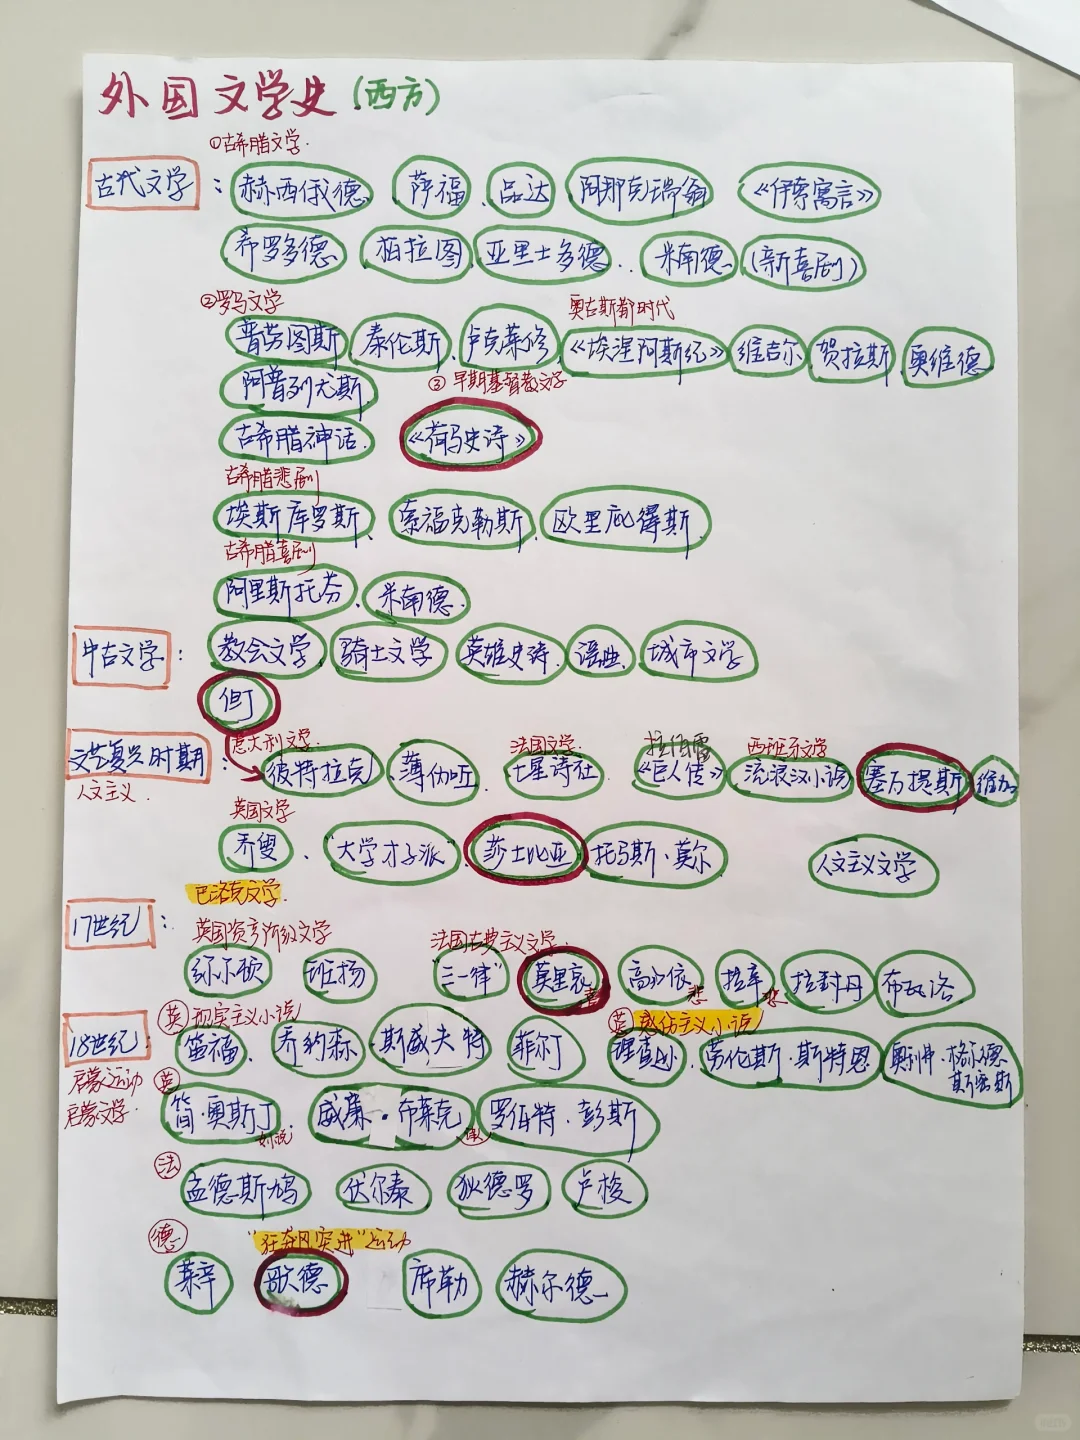 外国文学史(西方)
①古希腊文学.
古代文学：赫西俄德 萨福、品达、阿那克瑞翁 《伊索寓言》
希罗多德、柏拉图、亚里士多德、米南德(新喜剧)
②罗马文学 奥古斯都时代
普劳图斯、泰伦斯、卢克莱修、《埃涅阿斯纪》维吉尔、贺拉斯、奥维德
阿普列尤斯 ③早期基督教文学
古希腊神话. 《荷马史诗》
古希腊悲剧
埃斯库罗斯、索福克勒斯、欧里庇得斯
古希腊喜剧
阿里斯托芬、米南德.
中古文学：教会文学、骑士文学、英雄史诗、谣曲、城市文学
但丁
意大利文学. 法国文学. 拉伯雷 西班牙文学
文艺复兴时期：彼特拉克、薄伽丘、七星诗社 《巨人传》 流浪汉小说 塞万提斯 维加
人文主义.
英国文学
乔叟、"大学才子派"、莎士比亚 托马斯·莫尔 人文主义文学
巴洛克文学.
17世纪：英国资产阶级文学 法国古典主义文学.
弥尔顿 班扬 "三一律" 莫里哀喜 高乃依悲 拉辛悲 拉封丹 布瓦洛
英 现实主义小说 英 感伤主义小说
18世纪：笛福、乔纳森·斯威夫特 菲尔丁 理查逊、劳伦斯·斯特恩 奥利弗·格尔德斯密斯
启蒙运动 英
启蒙文学. 简·奥斯丁 威廉·布莱克 罗伯特·彭斯
法
孟德斯鸠 伏尔泰 狄德罗 卢梭
德 "狂飙突进"运动
莱辛 歌德 席勒 赫尔德